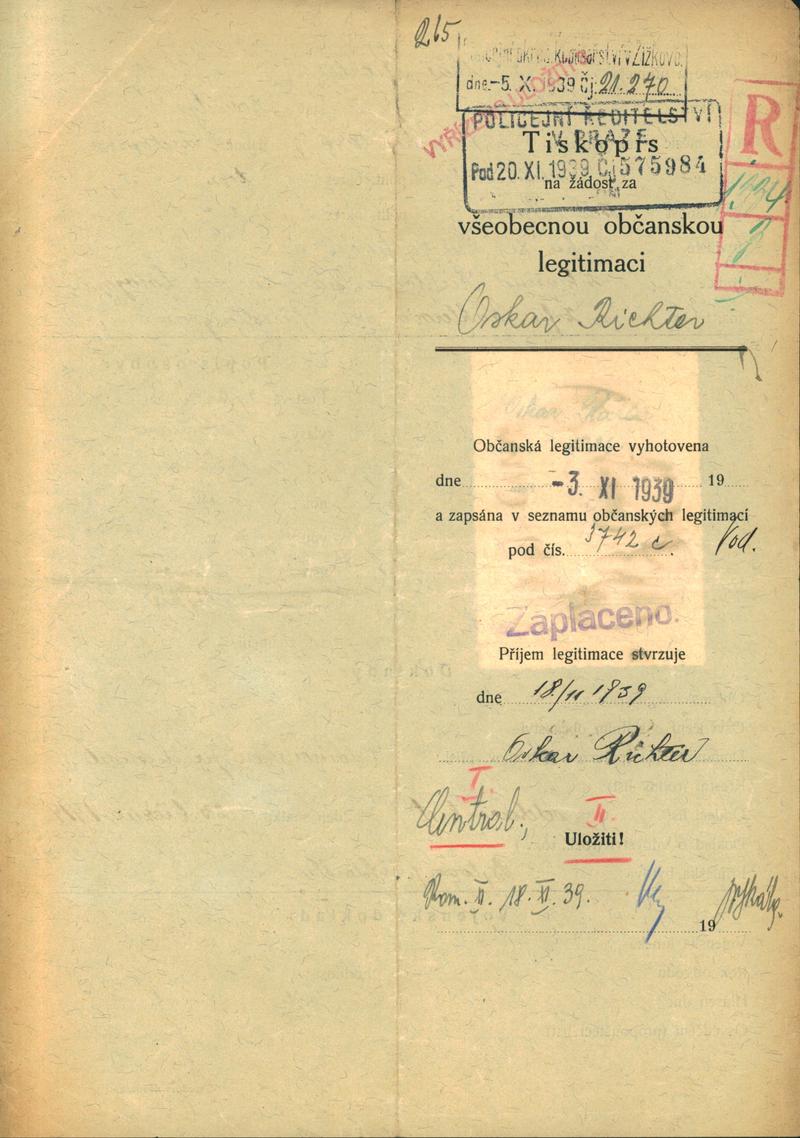 265
v Žižkově
dne -5. X. 1939 Čj. 21.270
VYŘÍZENO ULOŽITI
POLICEJNÍ ŘEDITELSTVÍ
V PRAZE
R
Tiskopis
Pod 20. XI. 1939 Čj 575984
na žádost za
1924
všeobecnou občanskou
legitimaci
Oskar Richter
Občanská legitimace vyhotovena
dne -3. XI 1939 19
a zapsána v seznamu občanských legitimací
pod čís. 3742 c. Vod.
Zaplaceno.
Příjem legitimace stvrzuje
dne 18/11 1939
Oskar Richter
I.
Central.,
II.
Uložiti!
Kom. II. 18. XI. 39.
19